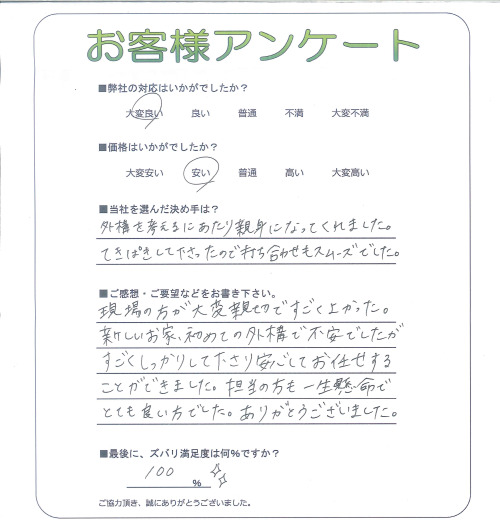 お客様アンケート
■弊社の対応はいかがでしたか？
大変良い 良い 普通 不満 大変不満
■価格はいかがでしたか？
大変安い 安い 普通 高い 大変高い
■当社を選んだ決め手は？
外構を考えるにあたり親身になってくれました。
てきぱきして下さったので打ち合わせもスムーズでした。
■ご感想・ご要望などをお書き下さい。
現場の方が大変親切ですごく良かった。
新しいお家、初めての外構で不安でしたが
すごくしっかりして下さり安心してお任せする
ことができました。担当の方も一生懸命で
とても良い方でした。ありがとうございました。
■最後に、ズバリ満足度は何%ですか？
100 %
ご協力頂き、誠にありがとうございました。